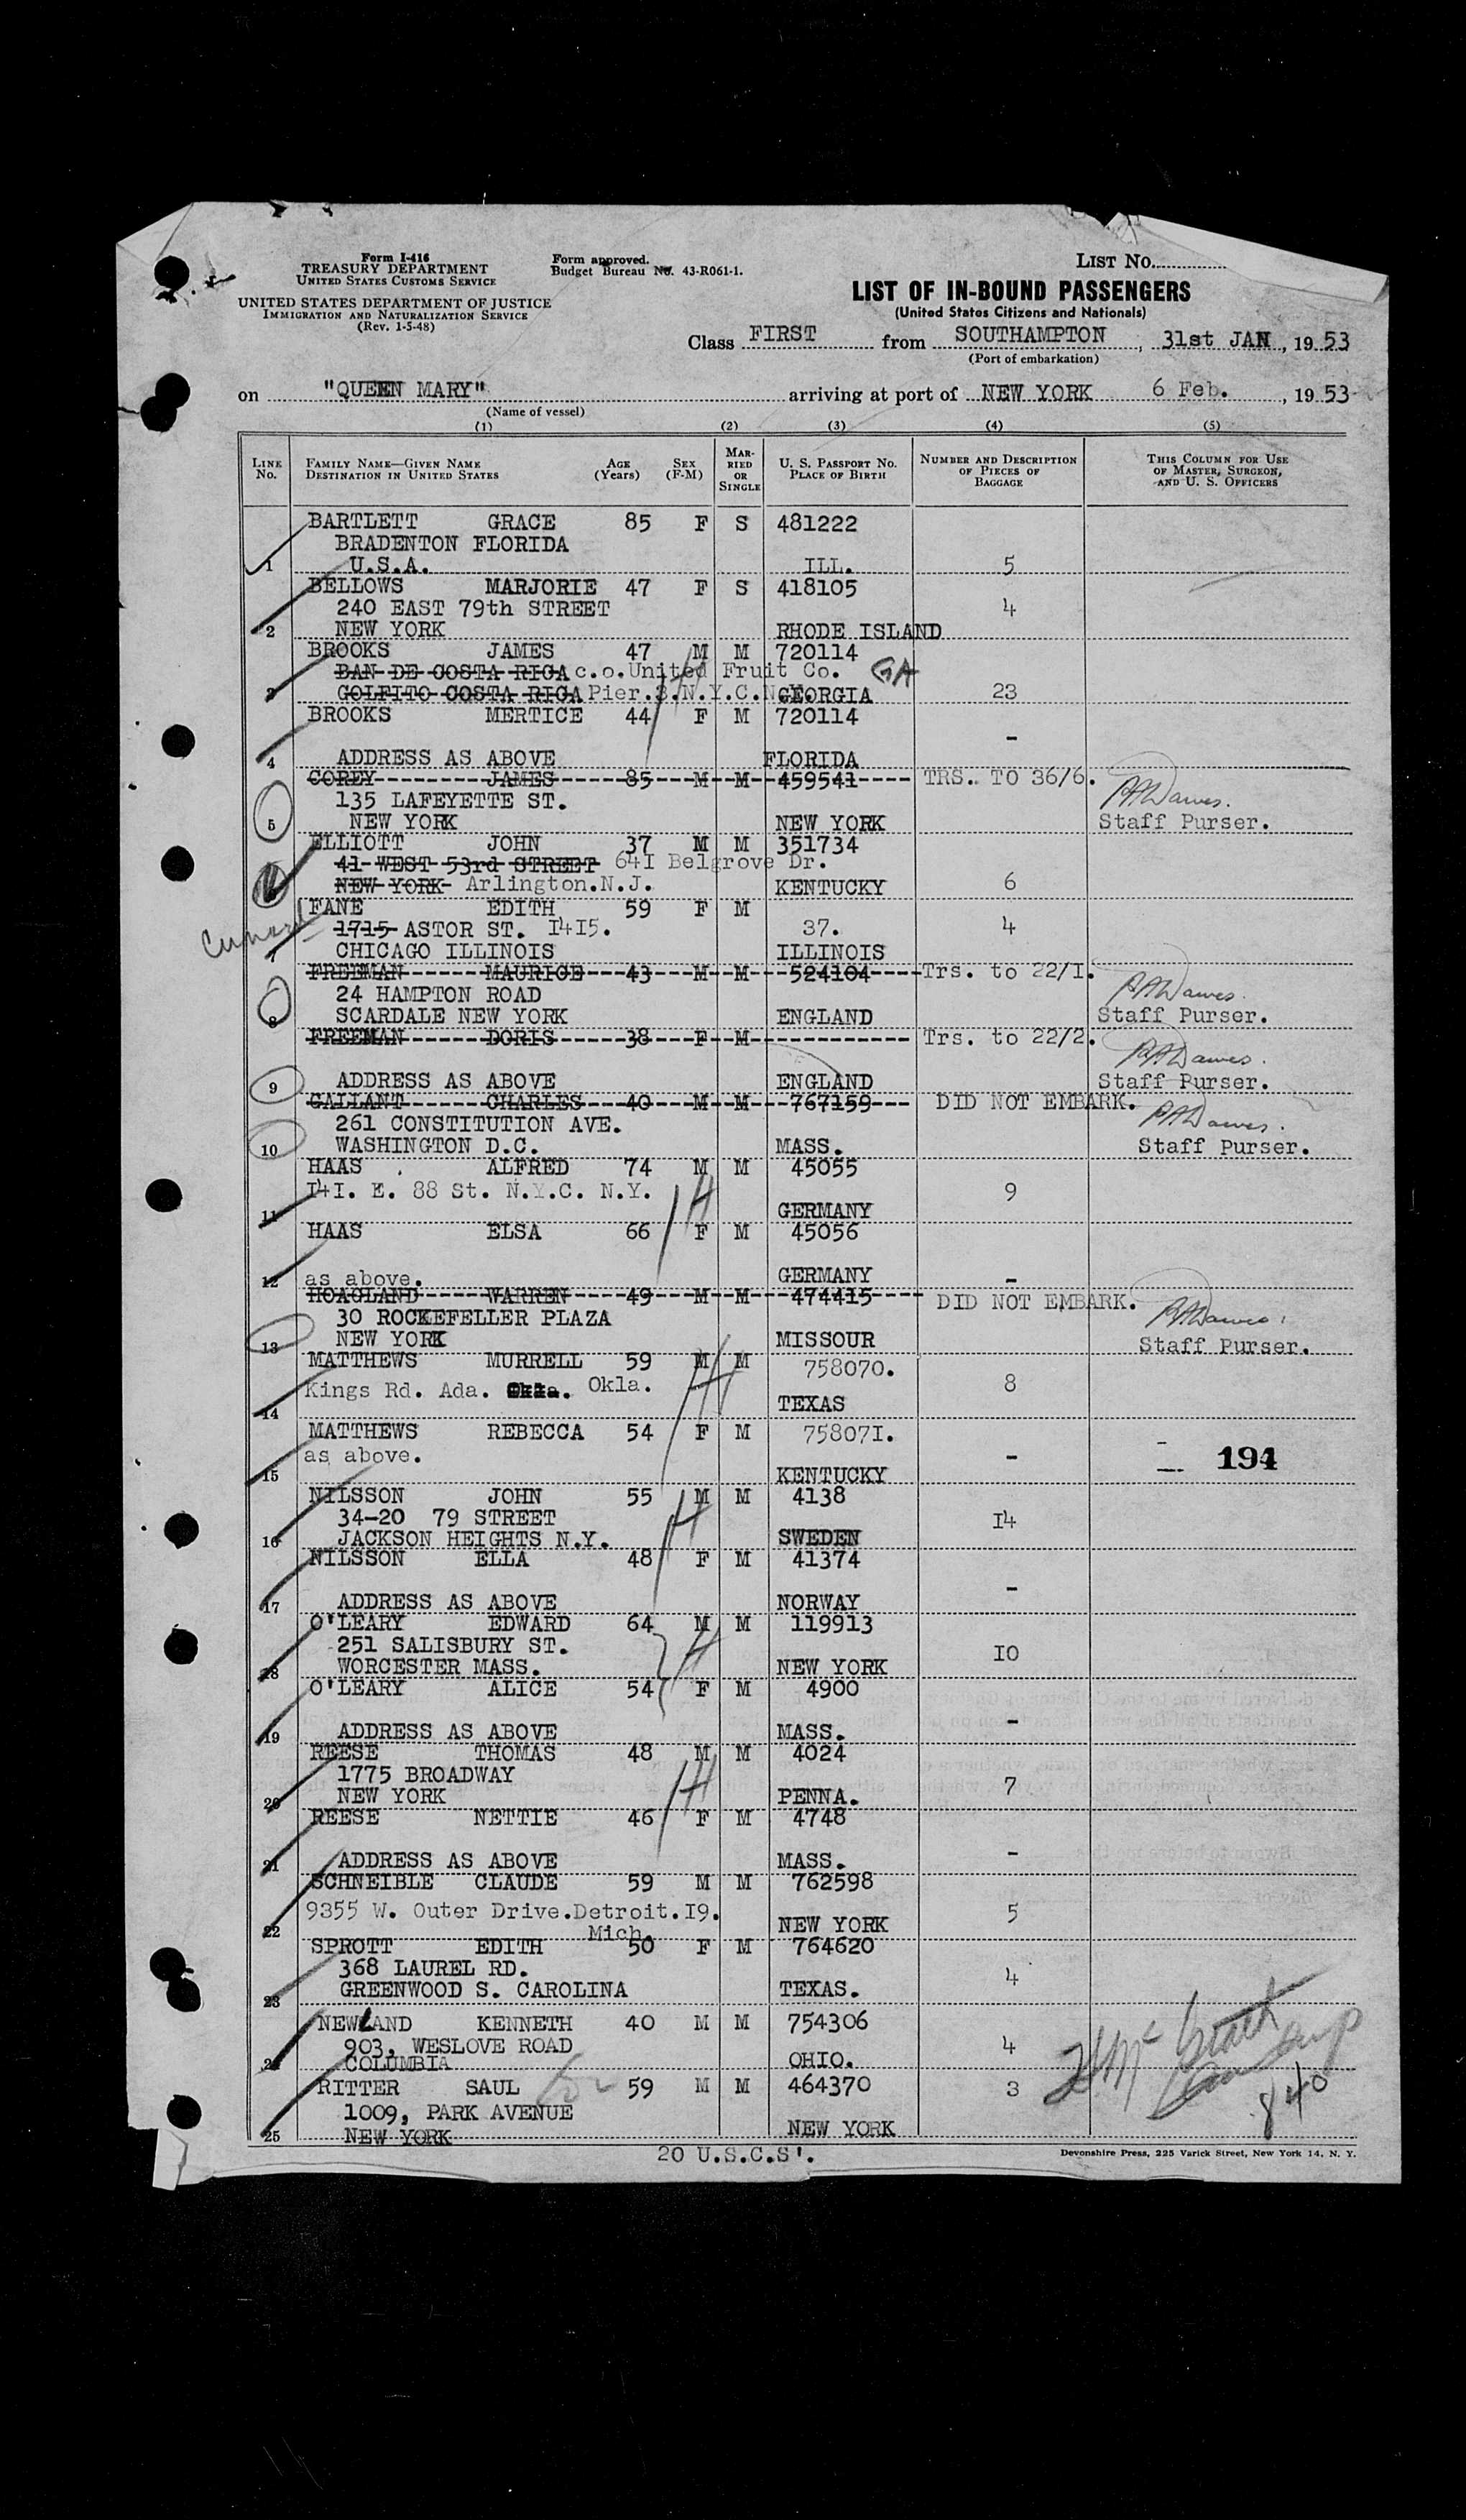 Form I-416
TREASURY DEPARTMENT
UNITED STATES CUSTOMS SERVICE
UNITED STATES DEPARTMENT OF JUSTICE
IMMIGRATION AND NATURALIZATION SERVICE
(Rev. 1-5-48)
Form approved.
Budget Bureau No. 43-R061-1.
LIST NO.
LIST OF IN-BOUND PASSENGERS
(United States Citizens and Nationals)
Class FIRST from SOUTHAMPTON, 31st JAN, 19 53
(Port of embarkation)
on "QUEEN MARY" arriving at port of NEW YORK 6 Feb., 19 53
(Name of vessel)
(1) (2) (3) (4) (5)
LINE NO. FAMILY NAME—GIVEN NAME DESTINATION IN UNITED STATES AGE (Years) SEX (F-M) MARRIED OR SINGLE U. S. PASSPORT NO. PLACE OF BIRTH NUMBER AND DESCRIPTION OF PIECES OF BAGGAGE THIS COLUMN FOR USE OF MASTER, SURGEON, AND U. S. OFFICERS
BARTLETT GRACE 85 F S 481222
BRADENTON FLORIDA
1 U.S.A. ILL. 5
BELLOWS MARJORIE 47 F S 418105
240 EAST 79th STREET 4
2 NEW YORK RHODE ISLAND
BROOKS JAMES 47 M M 720114
BAN DE COSTA RICA c.o.United Fruit Co. GA
3 GOLFITO COSTA RICA Pier.3.N.Y.C.N.Y. GEORGIA 23
BROOKS MERTICE 44 F M 720114
-
4 ADDRESS AS ABOVE FLORIDA
COREY JAMES 85 M M 459541 TRS. TO 36/6.
135 LAFEYETTE ST. Dawes.
5 NEW YORK NEW YORK Staff Purser.
ELLIOTT JOHN 37 M M 351734
41 WEST 53rd STREET 641 Belgrove Dr.
NEW YORK Arlington.N.J. KENTUCKY 6
FANE EDITH 59 F M
1715 ASTOR ST. I4I5. 37. 4
7 CHICAGO ILLINOIS ILLINOIS
FREEMAN MAURICE 43 M M 524104 Trs. to 22/I.
24 HAMPTON ROAD Dawes.
8 SCARDALE NEW YORK ENGLAND Staff Purser.
FREEMAN DORIS 38 F M Trs. to 22/2.
Dawes.
9 ADDRESS AS ABOVE ENGLAND Staff Purser.
GALLANT CHARLES 40 M M 767159 DID NOT EMBARK.
261 CONSTITUTION AVE. Dawes.
10 WASHINGTON D.C. MASS. Staff Purser.
HAAS ALFRED 74 M M 45055
I4I. E. 88 St. N.Y.C. N.Y. 9
11 GERMANY
HAAS ELSA 66 F M 45056
12 as above. GERMANY -
HOAGLAND WARREN 49 M M 474415 DID NOT EMBARK.
30 ROCKEFELLER PLAZA Dawes.
13 NEW YORK MISSOUR Staff Purser.
MATTHEWS MURRELL 59 M M 758070.
Kings Rd. Ada. Okla. Okla. 8
14 TEXAS
MATTHEWS REBECCA 54 F M 75807I.
as above. - 194
15 KENTUCKY
NILSSON JOHN 55 M M 4138
34-20 79 STREET I4
16 JACKSON HEIGHTS N.Y. SWEDEN
NILSSON ELLA 48 F M 41374
-
17 ADDRESS AS ABOVE NORWAY
O'LEARY EDWARD 64 M M 119913
251 SALISBURY ST. IO
18 WORCESTER MASS. NEW YORK
O'LEARY ALICE 54 F M 4900
-
19 ADDRESS AS ABOVE MASS.
REESE THOMAS 48 M M 4024
1775 BROADWAY 7
20 NEW YORK PENNA.
REESE NETTIE 46 F M 4748
-
21 ADDRESS AS ABOVE MASS.
SCHNEIBLE CLAUDE 59 M M 762598
9355 W. Outer Drive.Detroit.I9. 5
22 Mich. NEW YORK
SPROTT EDITH 50 F M 764620
368 LAUREL RD. 4
23 GREENWOOD S. CAROLINA TEXAS.
NEWLAND KENNETH 40 M M 754306
903, WESLOVE ROAD 4
24 COLUMBIA OHIO.
RITTER SAUL 59 M M 464370 3
1009, PARK AVENUE 840
25 NEW YORK NEW YORK
20 U.S.C.S'.
Devonshire Press, 225 Varick Street, New York 14, N. Y.